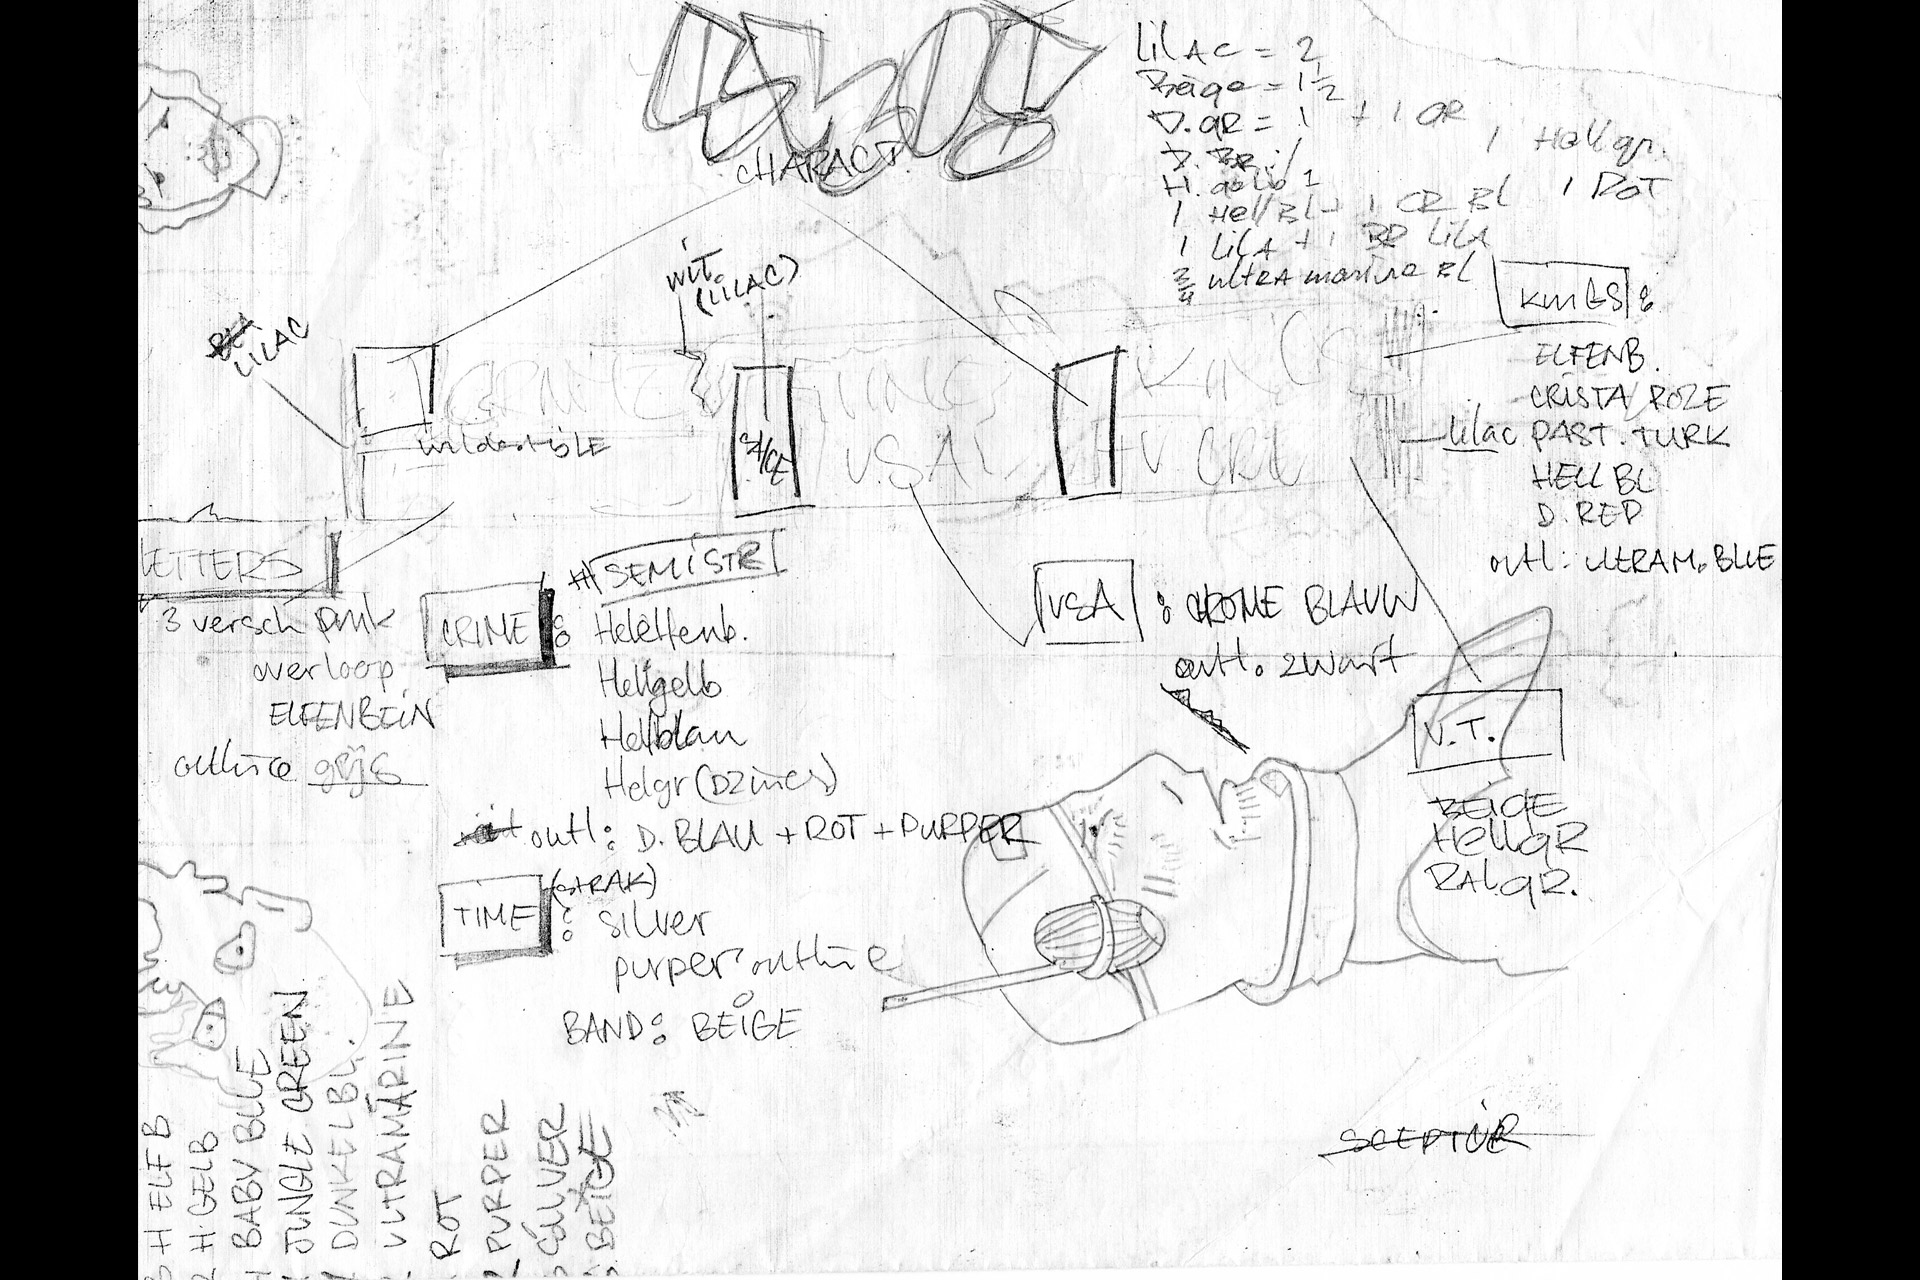 CHARACT.
LILAC = 2
Beige = 1 1/2
D.GR = 1 + 1 GR
1 Hell gr.
1 Hell BL + 1 CR BL
1 DOT
1 LILA + 1 BR LILA
3/4 ultra marine BL
WIT.
(LILAC)
LILAC
KINGS:
ELFENB.
CRISTA ROZE
lilac PAST. TURK
HELL BL
D. RED
outl: ULTRAM. BLUE
CRIME
TIME
KINGS
wildestyle
U.S.A.
LETTERS
3 versch pink
overloop
ELFENBEIN
outline grijs
SEMISTR
CRIME:
Helelfenb.
Hellgelb
Hellblau
Helgr (Dzines)
outl: D. BLAU + ROT + PURPER
(STRAK)
TIME : silver
purper outline
BAND: BEIGE
USA : CHROME BLAUW
outl. zwart
V.T.
BEIGE
HELLGR
RALGR.
SCEPTUR
H ELF B
H. GELB
BABY BLUE
JUNGLE GREEN
DUNKEL BL.
ULTRAMARINE
ROT
PURPER
BEIGE